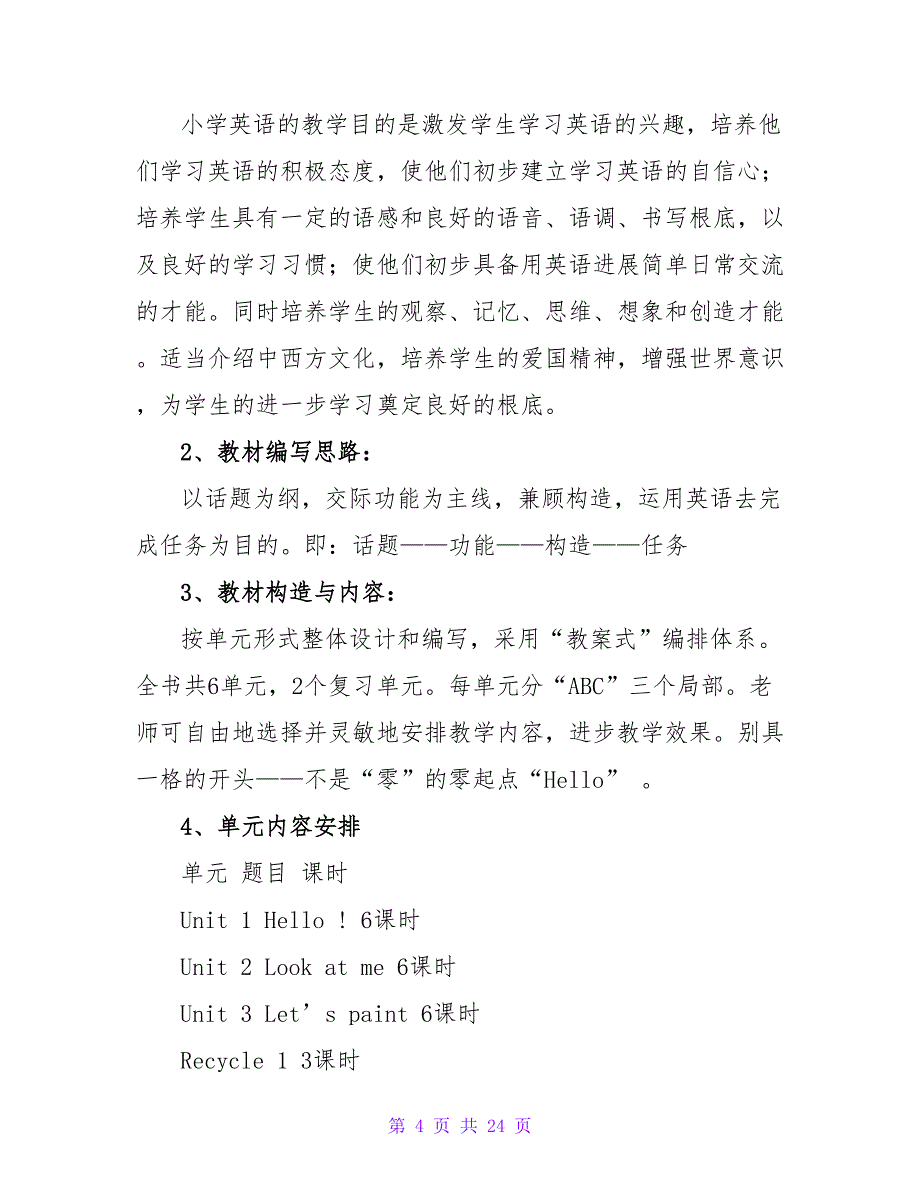 小学英语的教学目的是激发学生学习英语的兴趣，培养他
们学习英语的积极态度，使他们初步建立学习英语的自信心；
培养学生具有一定的语感和良好的语音、语调、书写根底，以
及良好的学习习惯；使他们初步具备用英语进展简单日常交流
的才能。同时培养学生的观察、记忆、思维、想象和创造才能
。适当介绍中西方文化，培养学生的爱国精神，增强世界意识
，为学生的进一步学习奠定良好的根底。
2、教材编写思路：
以话题为纲，交际功能为主线，兼顾构造，运用英语去完
成任务为目的。即：话题——功能——构造——任务
3、教材构造与内容：
按单元形式整体设计和编写，采用“教案式”编排体系。
全书共6单元，2个复习单元。每单元分“ABC”三个局部。老
师可自由地选择并灵敏地安排教学内容，进步教学效果。别具
一格的开头——不是“零”的零起点“Hello” 。
4、单元内容安排
单元 题目 课时
Unit 1 Hello ! 6课时
Unit 2 Look at me 6课时
Unit 3 Let’s paint 6课时
Recycle 1 3课时
第 4 页 共 24 页